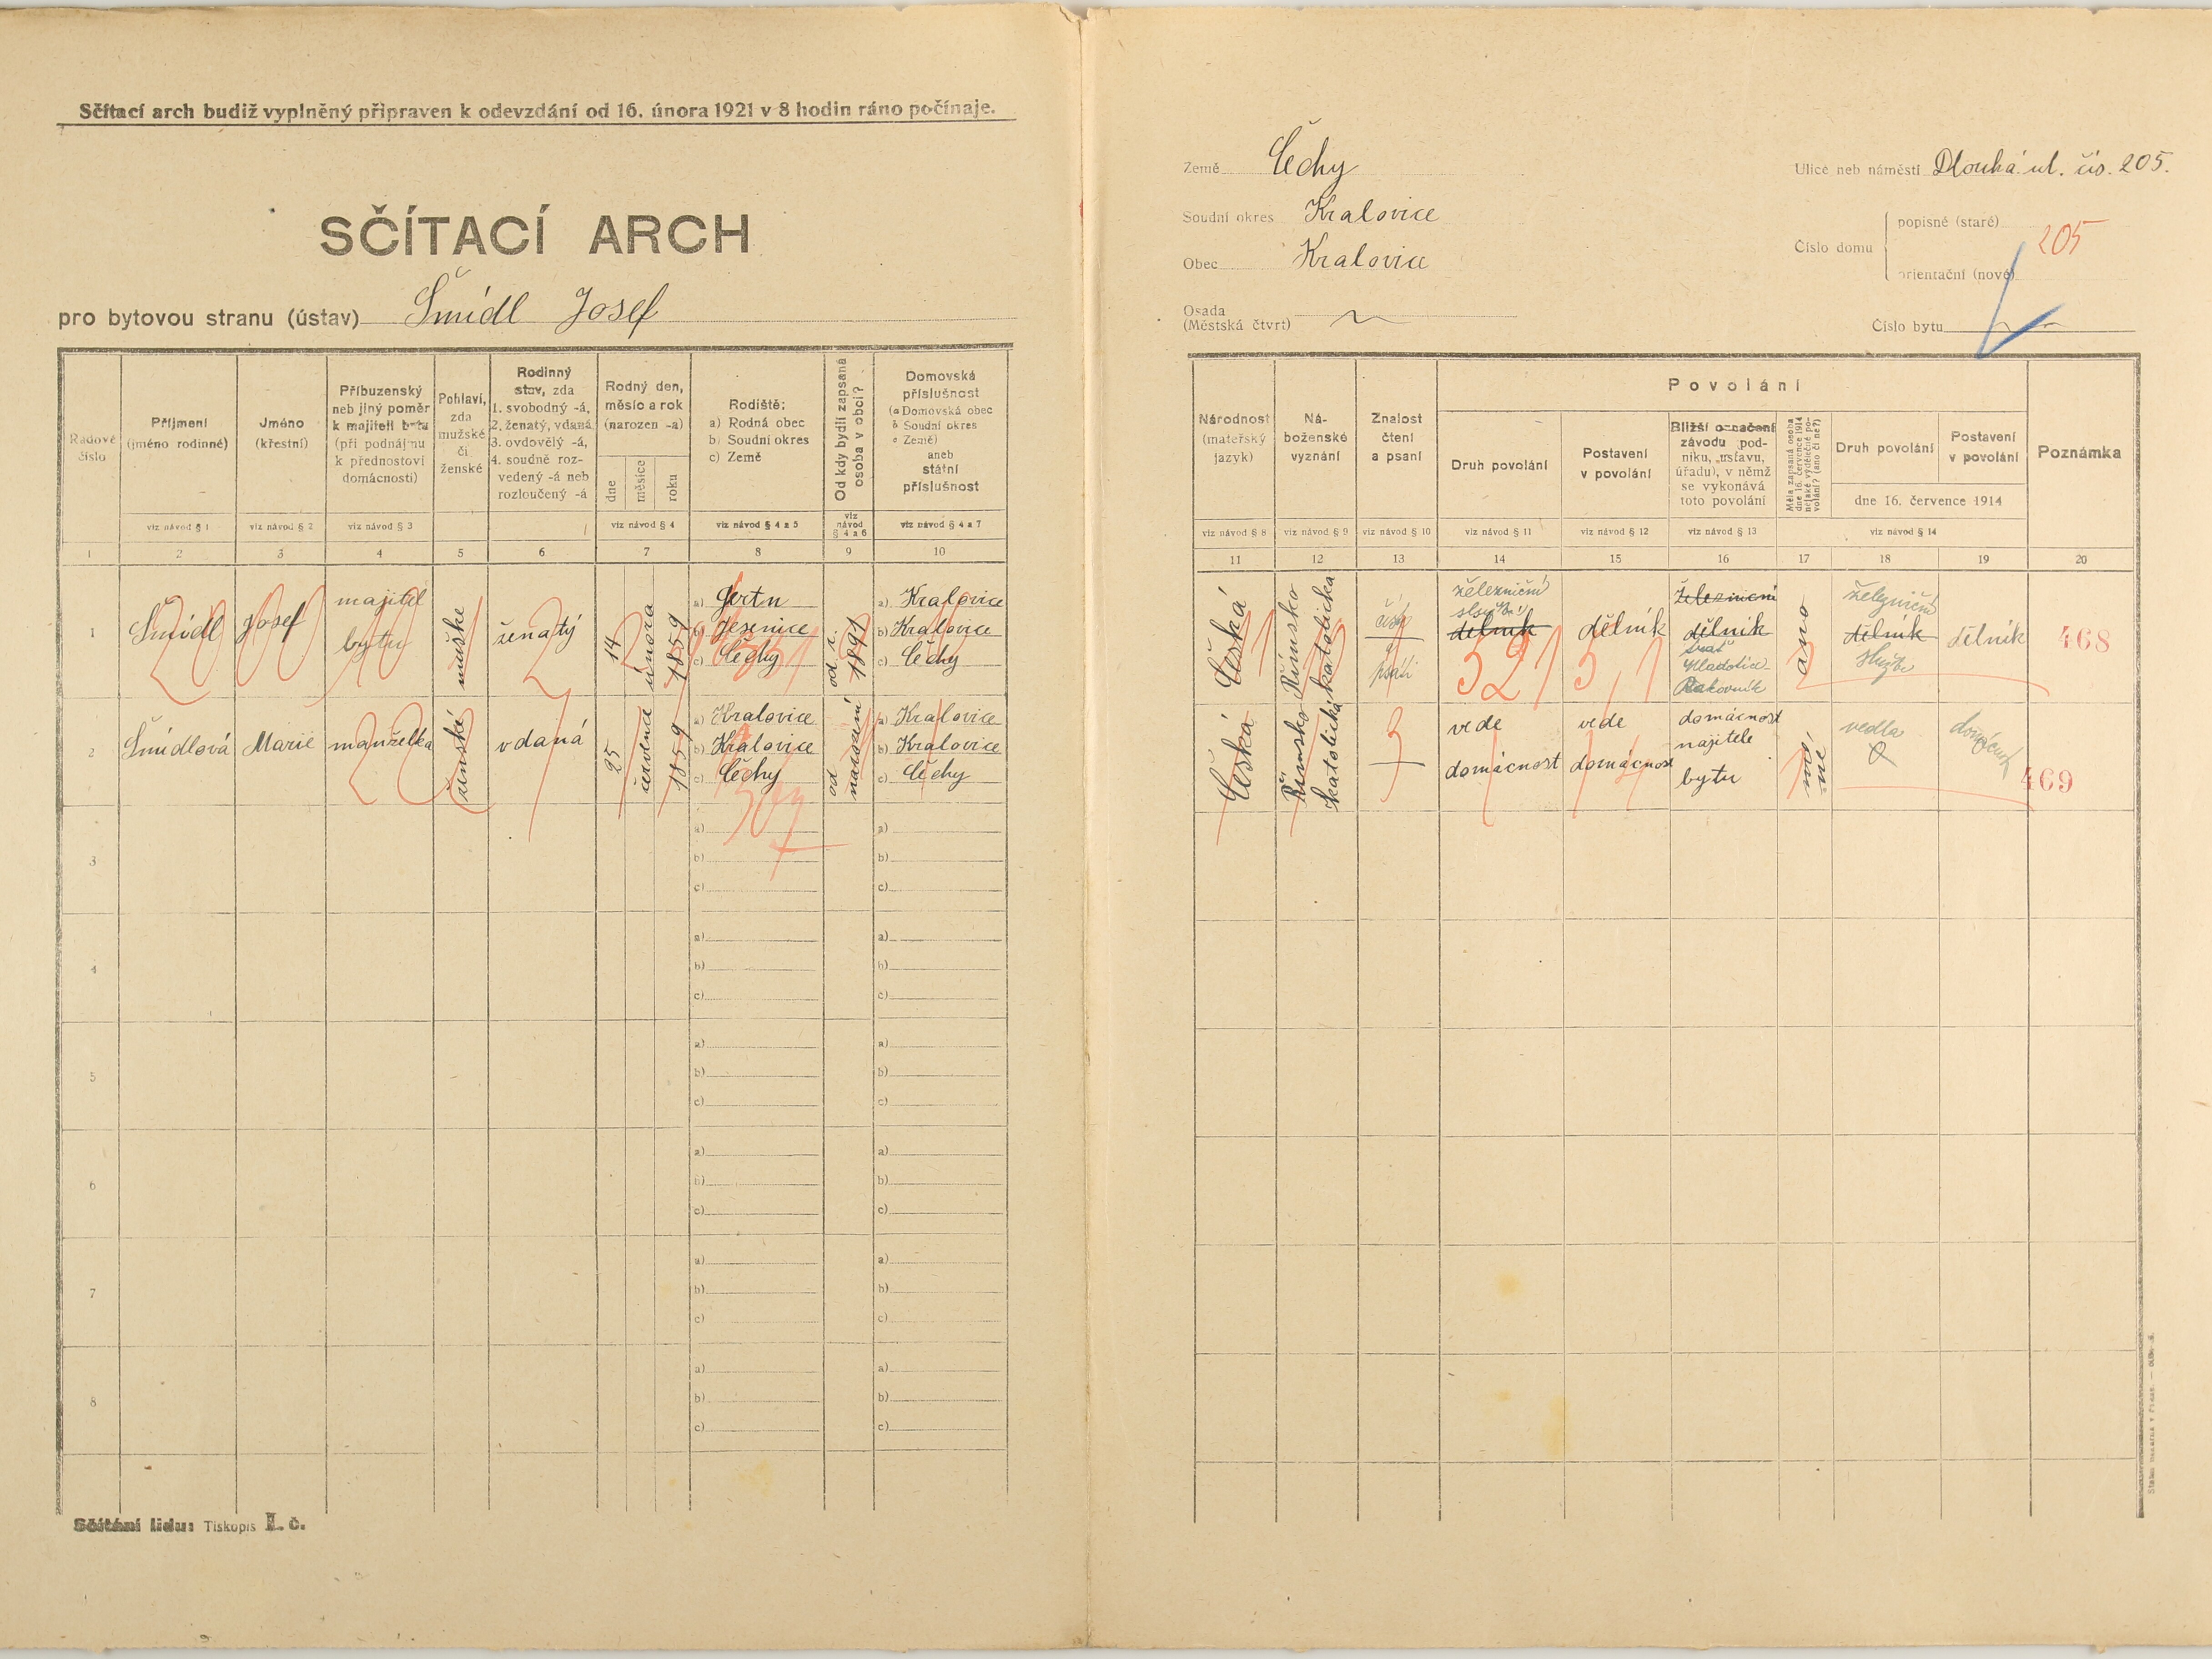 Sčítací arch budiž vyplněný připraven k odevzdání od 16. února 1921 v 8 hodin ráno počínaje.
SČÍTACÍ ARCH
pro bytovou stranu (ústav) Šmídl Josef
Řadové číslo
Příjmení
(jméno rodinné)
Jméno
(křestní)
Příbuzenský
neb jiný poměr
k majiteli bytu
(při podnájmu
k přednostovi
domácnosti)
Pohlaví,
zda
mužské
či
ženské
Rodinný
stav, zda
1. svobodný -á,
2. ženatý, vdaná
3. ovdovělý -á,
4. soudně roz-
vedený -á neb
rozloučený -á
Rodný den,
měsíc a rok
(narozen -a)
dne
měsíce
roku
Rodiště:
a) Rodná obec
b) Soudní okres
c) Země
Od kdy bydlí zapsaná
osoba v obci?
Domovská
příslušnost
(a Domovská obec
b Soudní okres
c Země)
aneb
státní
příslušnost
viz návod § 1
viz návod § 2
viz návod § 3
viz návod § 4
viz návod § 4 a 5
viz
návod
§ 4 a 6
viz návod § 4 a 7
1 2 3 4 5 6 7 8 9 10
1
Šmídl
Josef
majitel
bytu
mužské
ženatý
14
února
1859
a) Žertn
b) Jesenice
c) Čechy
od r.
1891
a) Kralovice
b) Kralovice
c) Čechy
2
Šmídlová
Marie
manželka
ženské
vdaná
25
července
1859
a) Kralovice
b) Kralovice
c) Čechy
od
narození
a) Kralovice
b) Kralovice
c) Čechy
3
a) a)
b) b)
c) c)
4
a) a)
b) b)
c) c)
5
a) a)
b) b)
c) c)
6
a) a)
b) b)
c) c)
7
a) a)
b) b)
c) c)
8
a) a)
b) b)
c) c)
Sčítání lidu: Tiskopis I. č.
Země Čechy
Soudní okres Kralovice
Obec Kralovice
Osada
(Městská čtvrt)
Ulice neb náměstí Dlouhá ul. čís. 205.
Číslo domu
popisné (staré) 205
orientační (nové)
Číslo bytu
Národnost
(mateřský
jazyk)
Ná-
boženské
vyznání
Znalost
čtení
a psaní
Povolání
Druh povolání
Postavení
v povolání
Bližší označení
závodu (pod-
niku, ústavu,
úřadu), v němž
se vykonává
toto povolání
Měla zapsaná osoba
dne 16. července 1914
nějaké výdělečné po-
volání? (ano či ne?)
Druh povolání
Postavení
v povolání
dne 16. července 1914
Poznámka
viz návod § 8
viz návod § 9
viz návod § 10
viz návod § 11
viz návod § 12
viz návod § 13
viz návod § 14
11 12 13 14 15 16 17 18 19 20
Česká
Římsko
katolická
psáti
železniční
dělník
521
dělník
železniční
dělník
trať
Mladotice
Rakovník
ano
železniční
dělník
službě
dělník
468
Česká
Římsko
katolická
vede
domácnost
vede
domácnost
domácnost
majitele
bytu
ne
vedla
domácnost
469